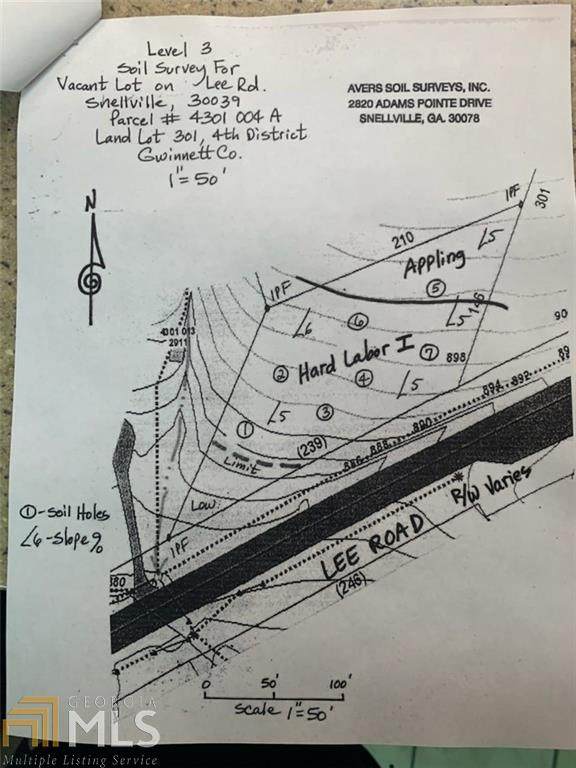 Level 3
Soil Survey For
Vacant Lot on Lee Rd.
Snellville, 30039
Parcel # 4301 004 A
Land Lot 301, 4th District
Gwinnett Co.
1"=50'
AVERS SOIL SURVEYS, INC.
2820 ADAMS POINTE DRIVE
SNELLVILLE, GA. 30078
N
IPF
301
210
∠5
Appling
IPF
⑤
∠5
146
4301 013
2911
∠6
⑥
90
Hard Labor I
⑦
898
89
②
④
∠5
894
892
∠5
③
890
①
(239)
888
886
Limit
Low
R/W Varies
①-Soil Holes
∠6-Slope %
IPF
LEE ROAD
(246)
880
0 50' 100'
Scale 1"=50'
GEORGIA
MLS
Multiple Listing Service